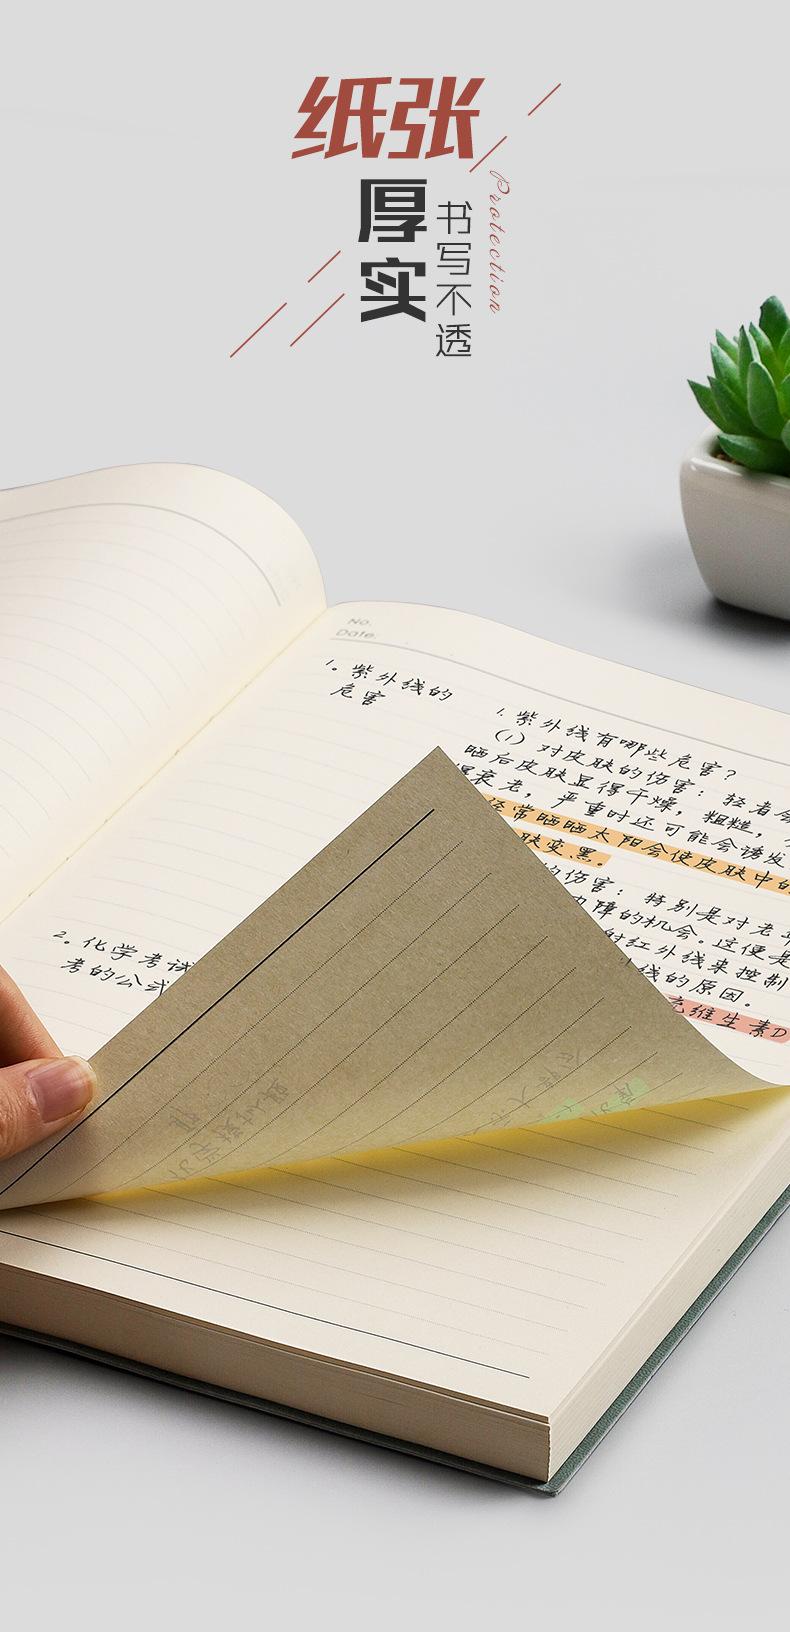 纸张
厚实
书写不透
Protection
No.
Date:
1。紫外线的
危害
1.紫外线有哪些危害?
(1)对皮肤的伤害:轻者会
晒后皮肤显得干燥,粗糙,
衰老,严重时还可能会诱发
经常晒晒太阳会使皮肤中的
肤变黑。
的伤害:特别是对老年
障的机会。这便是
射红外线来控制
线的原因。
维生素D
2。化学考试
考的公式